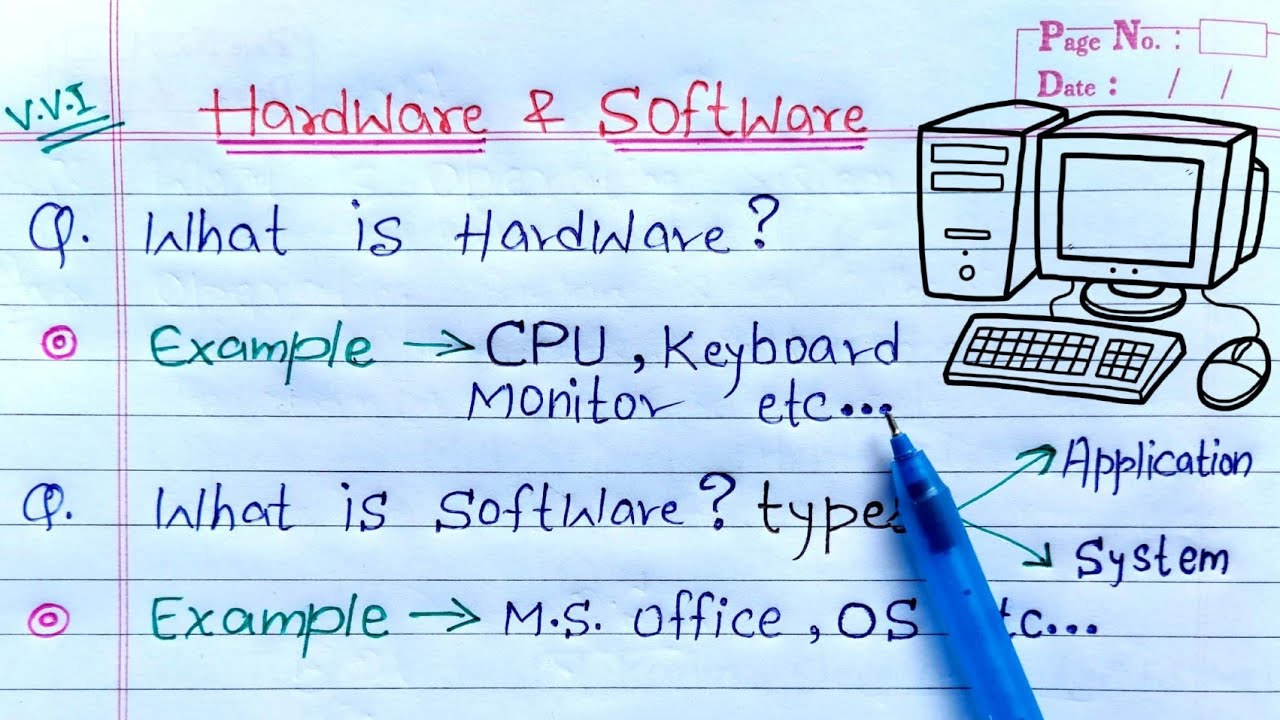 Page No. :
Date : / /
V.V.I Hardware & Software
Q. What is Hardware?
Example → CPU, Keyboard
Monitor etc...
Application
Q. What is Software? types
System
Example → M.S. Office, OS etc...